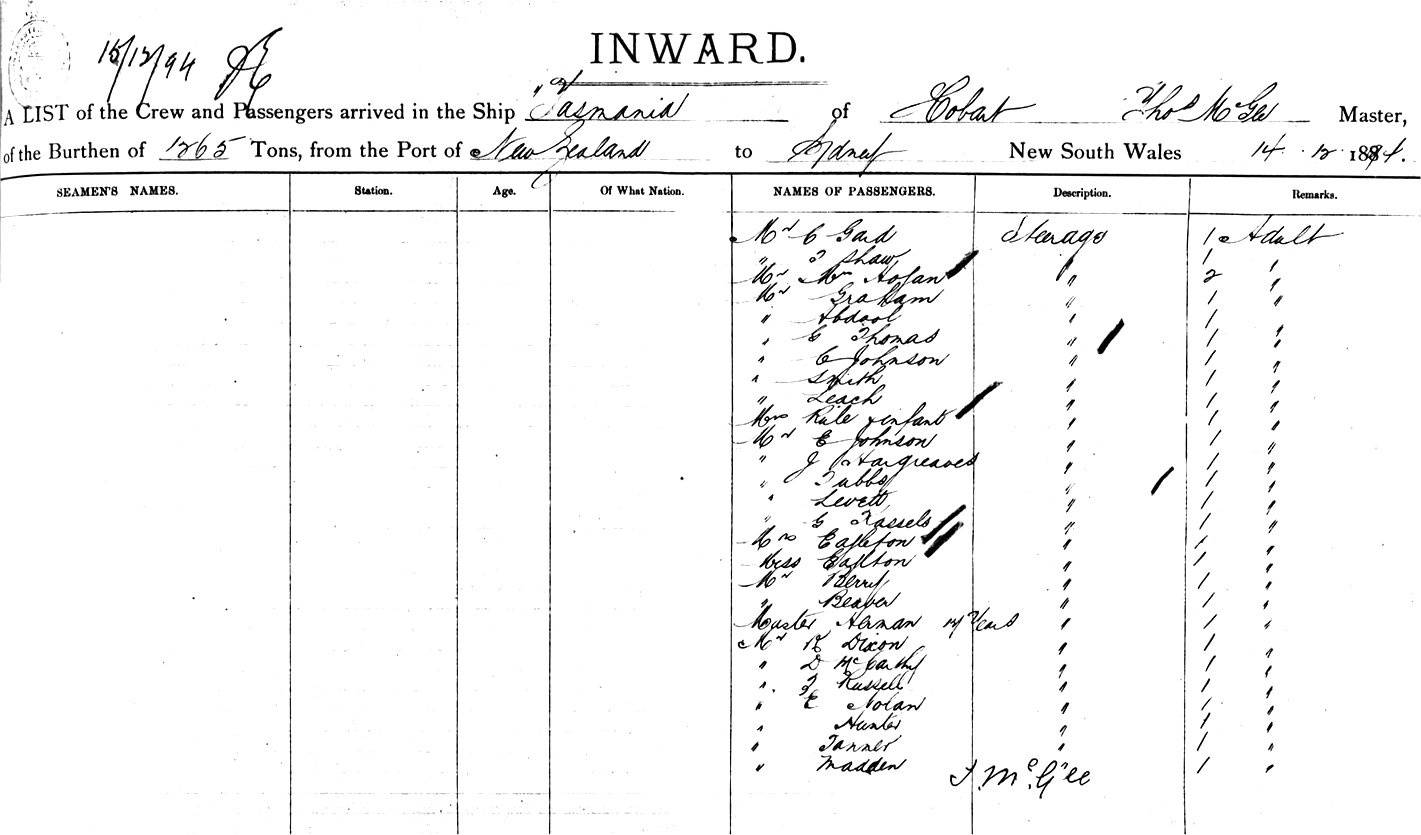 15/12/94
INWARD.
A LIST of the Crew and Passengers arrived in the Ship Tasmania of Hobart Thos McGee Master,
of the Burthen of 1265 Tons, from the Port of New Zealand to Sydney New South Wales 14.12.1894.
SEAMEN'S NAMES. Station. Age. Of What Nation. NAMES OF PASSENGERS. Description. Remarks.
Mr C Gard Steerage 1 Adult
" Shaw " 1 "
Mr Mrs " 2 "
Mr Graham " 1 "
" Abdool " 1 "
" G Thomas " 1 "
" C Johnson " 1 "
" Smith " 1 "
" Leach " 1 "
Mrs Rule & infant " 1 "
Mr E Johnson " 1 "
" J Hargreaves " 1 "
" Tubbs " 1 "
" Levett " 1 "
" G Tassels " 1 "
Mrs Eagleton " 1 "
Miss Eagleton " 1 "
Mr Berry " 1 "
" Beaver " 1 "
Master Herman Years " 1 "
Mr R Dixon " 1 "
" D McCarthy " 1 "
" Russell " 1 "
" E Nolan " 1 "
" Hunter " 1 "
" Tanner " 1 "
" Madden 1 "
T. McGee